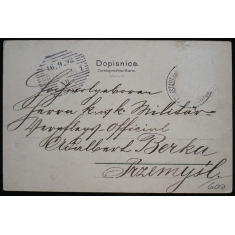 Dopisnice.
Correspondenz-Karte.
16.9.98
Hochwolgeboren
Herrn k. u. k. Militär-
Verpflegs Official
Adalbert Berka
Przemyśl.